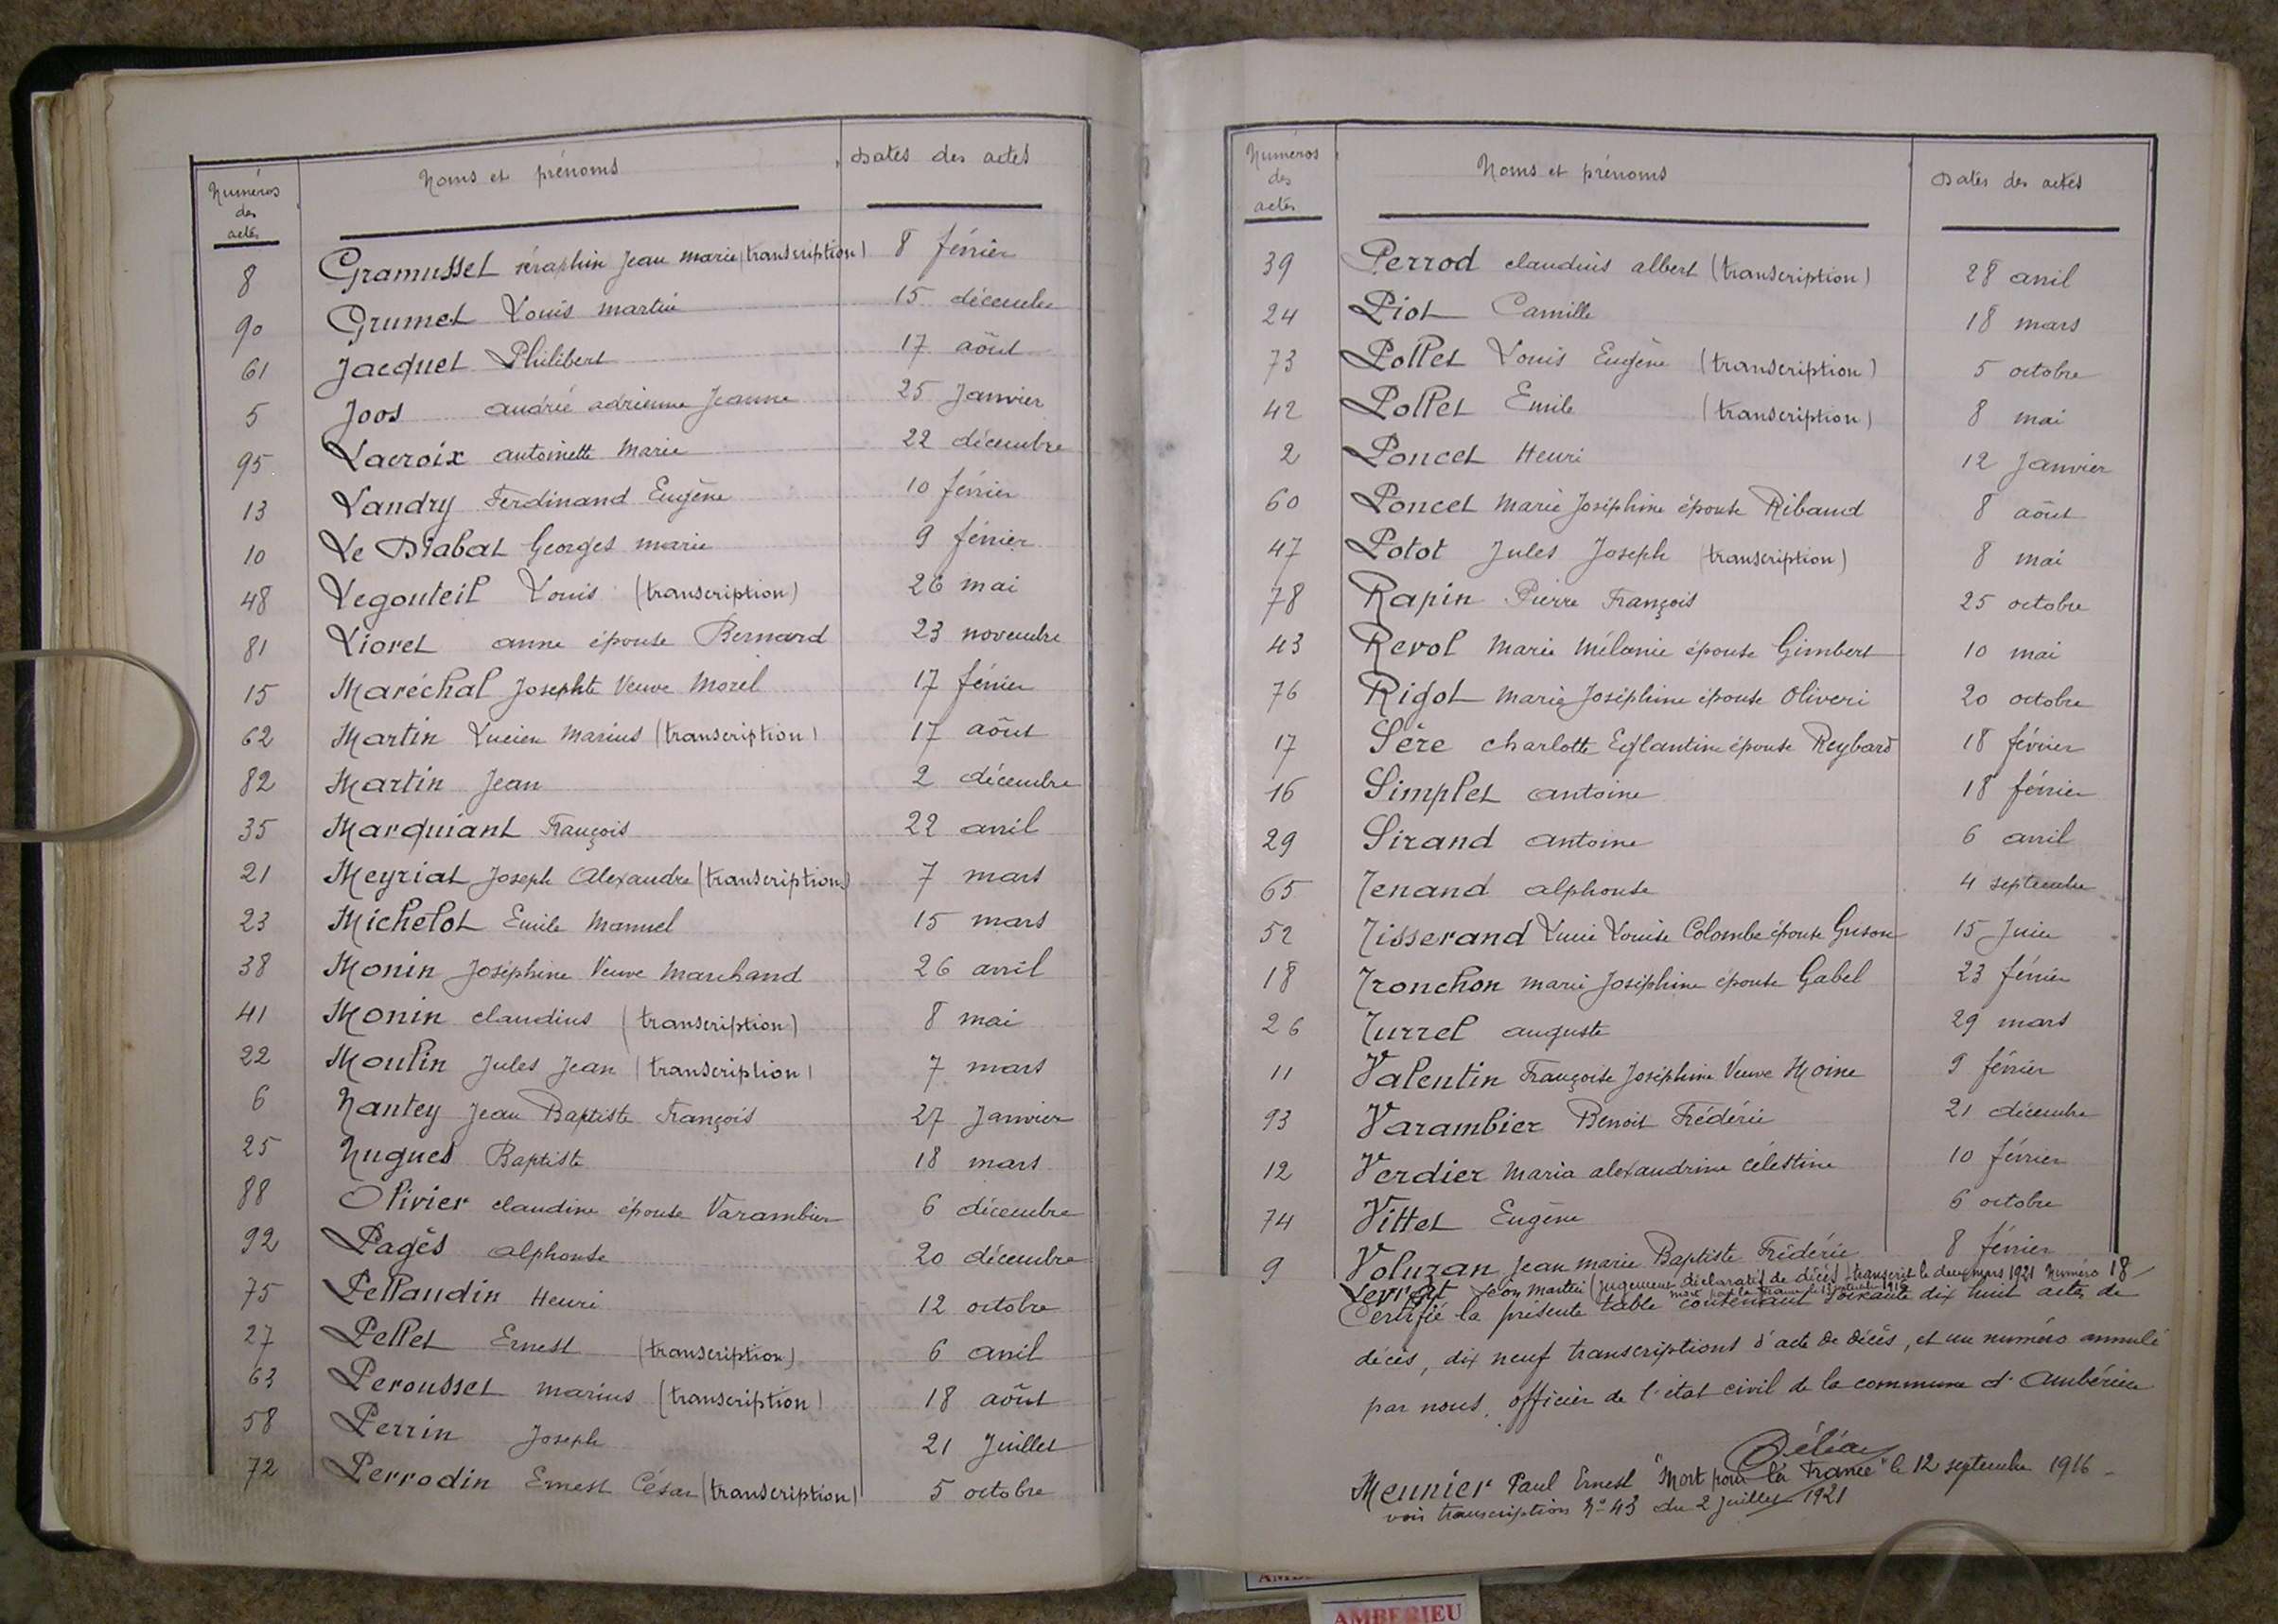 Numéros des actes Noms et prénoms Dates des actes
8 Gramusset séraphin Jean marie (transcription) 8 février
90 Grumet Louis martin 15 décembre
61 Jacquet Philibert 17 août
5 Joos andrée adrienne Jeanne 25 Janvier
95 Lacroix antoinette Marie 22 décembre
13 Landry Ferdinand Eugène 10 février
10 Le Diabat Georges marie 9 février
48 Legouteil Louis (transcription) 26 mai
81 Lioret anne épouse Bernard 23 novembre
15 Maréchal Josephte Veuve Morel 17 février
62 Martin Lucien Marius (transcription) 17 août
82 Martin Jean 2 décembre
35 Marquiant François 22 avril
21 Meyriat Joseph Alexandre (transcription) 7 mars
23 Michelot Emile Manuel 15 mars
38 Monin Joséphine Veuve Marchand 26 avril
41 Monin claudius (transcription) 8 mai
22 Moulin Jules Jean (transcription) 7 mars
6 Nantey Jean Baptiste François 27 Janvier
25 Nugues Baptiste 18 mars
88 Olivier claudine épouse Varambier 6 décembre
92 Pagès alphonse 20 décembre
75 Pellaudin Henri 12 octobre
27 Pellet Ernest (transcription) 6 avril
63 Perousset marius (transcription) 18 août
58 Perrin Joseph 21 Juillet
72 Perrodin Ernest César (transcription) 5 octobre
Numéros des actes Noms et prénoms Dates des actes
39 Perrod claudius albert (transcription) 28 avril
24 Piot Camille 18 mars
73 Pollet Louis Eugène (transcription) 5 octobre
42 Pollet Emile (transcription) 8 mai
2 Poncet Henri 12 Janvier
60 Poncet Marie Joséphine épouse Ribaud 8 août
47 Potot Jules Joseph (transcription) 8 mai
78 Rapin Pierre François 25 octobre
43 Revol Marie Mélanie épouse Gimbert 10 mai
76 Rigot Marie Joséphine épouse Oliveri 20 octobre
17 Sère charlotte Eglantine épouse Reybard 18 février
16 Simplet antoine 18 février
29 Sirand antoine 6 avril
65 Tenand alphonse 4 septembre
52 Tisserand Lucie Louise Colombe épouse Grison 15 Juin
18 Tronchon marie Joséphine épouse Gabel 23 février
26 Turrel auguste 29 mars
11 Valentin Françoise Joséphine Veuve Moine 9 février
93 Varambier Benoit Frédéric 21 décembre
12 Verdier Maria alexandrine célestine 10 février
74 Vittet Eugène 6 octobre
9 Voluzan Jean Marie Baptiste Frédéric 8 février
Levrat Léon Martin (jugement déclaratif de décès) transcrit le deux mars 1921 Numéro 18
mort pour la France le 13 1916
Certifié la présente table contenant soixante dix huit actes de
décès, dix neuf transcriptions d'acte de décès, et un numéro annulé
par nous, officier de l'état civil de la commune d'Ambérieu
Meunier Paul Ernest "Mort pour la France" le 12 septembre 1916
voir transcription N° 43 du 2 juillet 1921
AMBERIEU